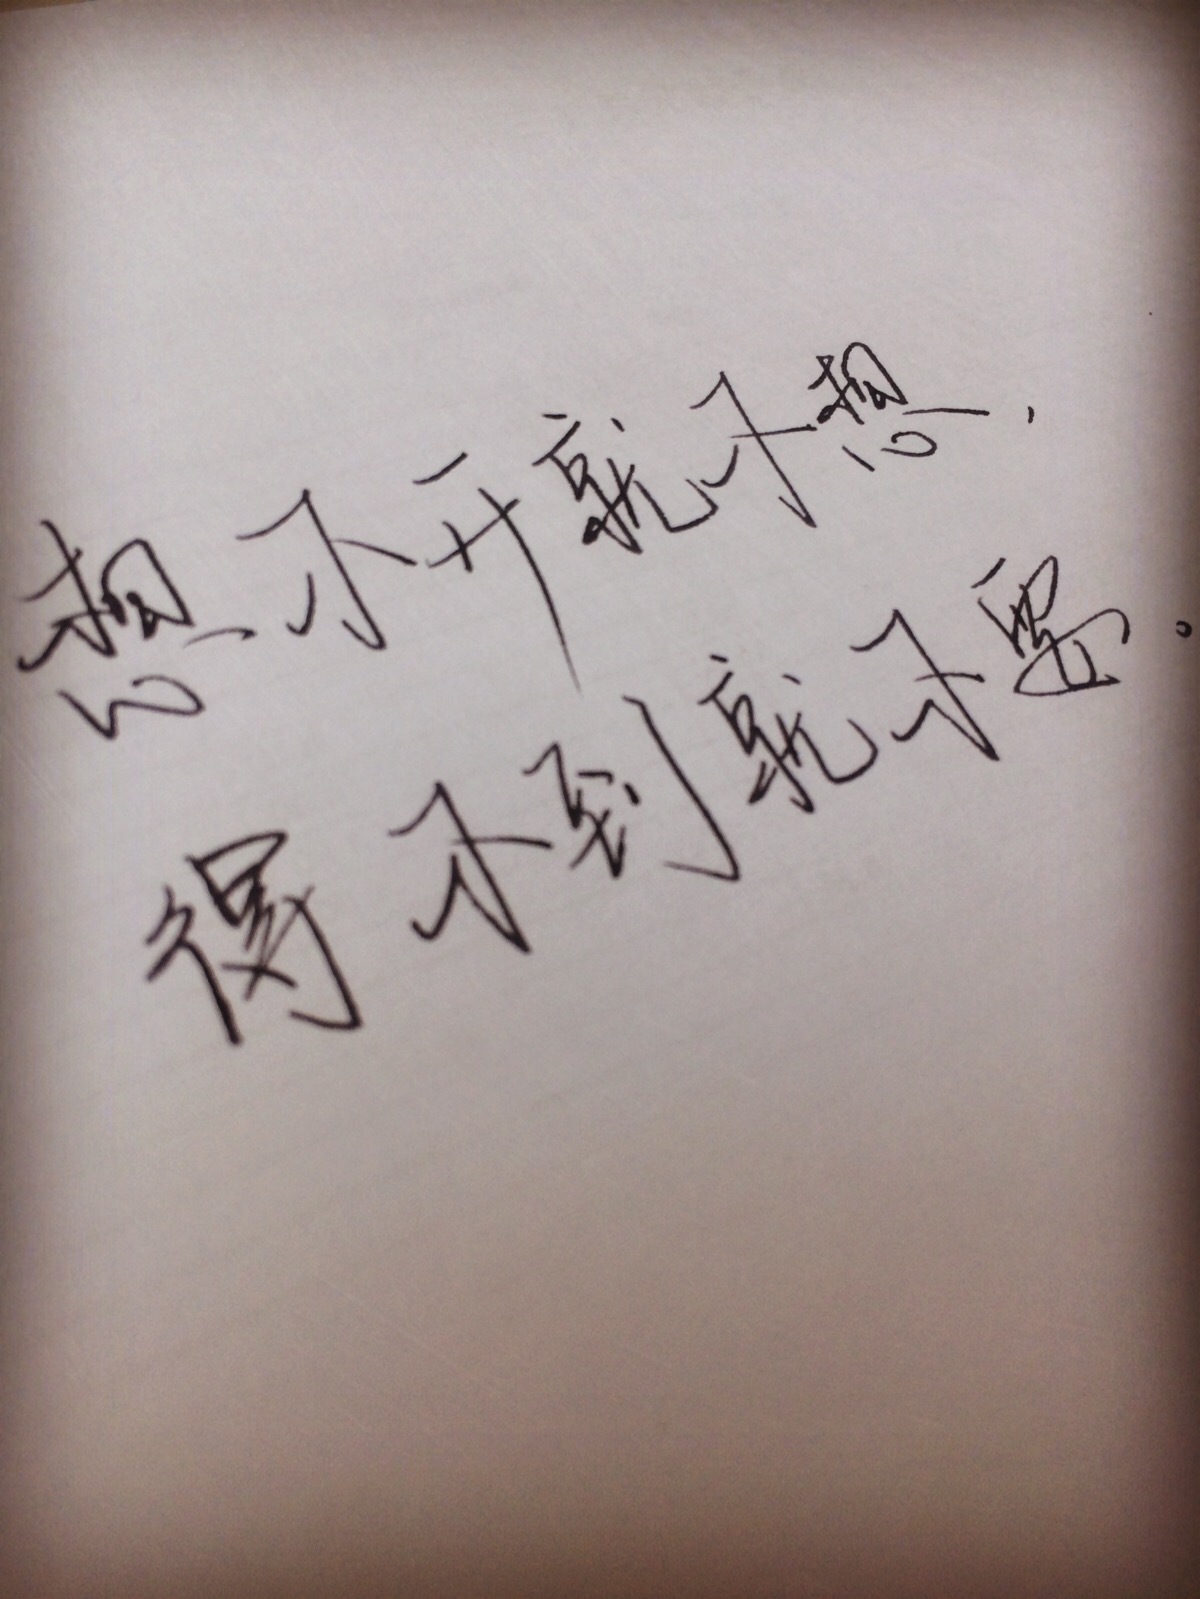 想不开就不想，
得不到就不要。